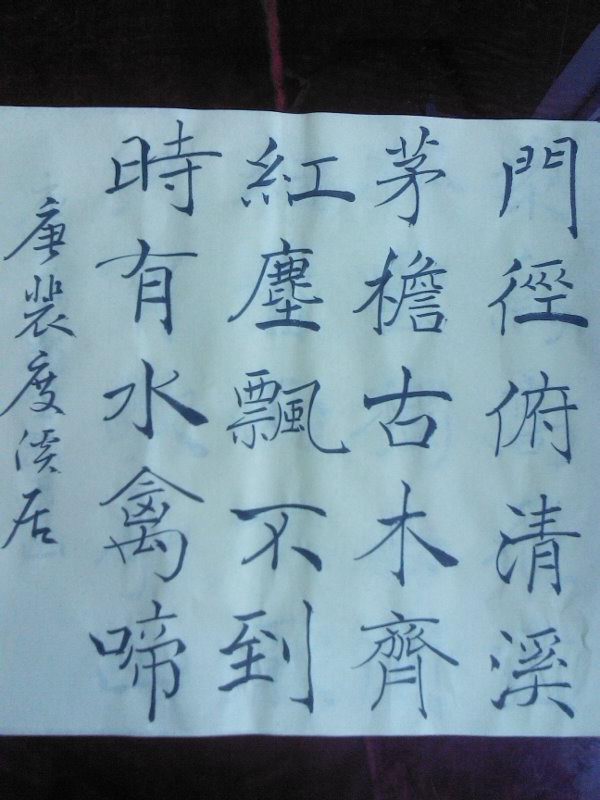 門徑俯清溪
茅檐古木齊
紅塵飄不到
時有水禽啼
唐裴度溪居